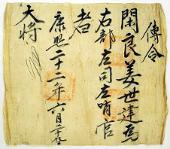 傳令
閑良姜世達爲
右部左司左哨官
者
康熙二十二年六月
大将